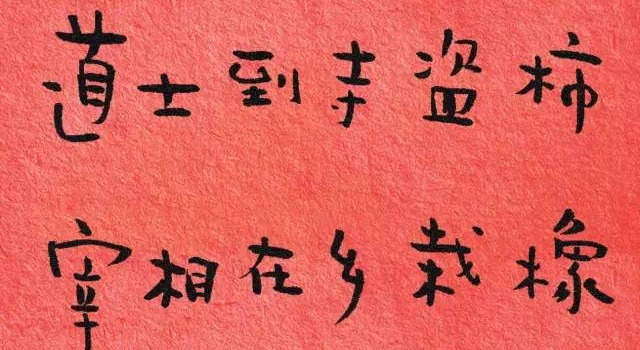 道士到寺盗柿
宰相在乡栽橡